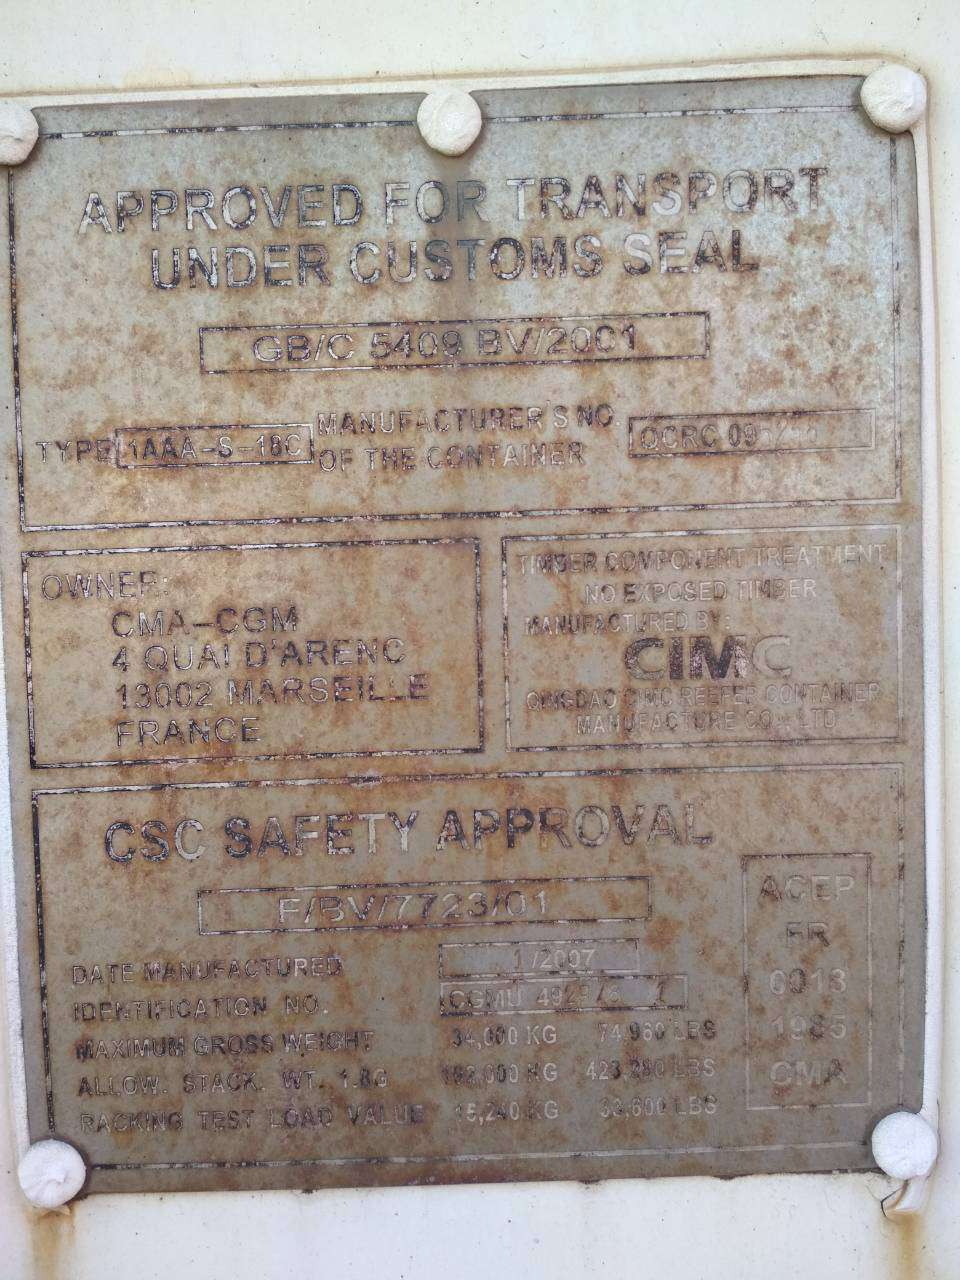 APPROVED FOR TRANSPORT
UNDER CUSTOMS SEAL
GB/C 5409 BV/2001
TYPE 1AAA-S-18C
MANUFACTURER'S NO.
OF THE CONTAINER
QCRC
OWNER:
CMA-CGM
4 QUAI D'ARENC
13002 MARSEILLE
FRANCE
TIMBER COMPONENT TREATMENT
NO EXPOSED TIMBER
MANUFACTURED BY:
CIMC
QINGDAO CIMC REEFER CONTAINER
MANUFACTURE CO., LTD
CSC SAFETY APPROVAL
F/BV/7723/01
DATE MANUFACTURED 1/2007
IDENTIFICATION NO. CGMU
MAXIMUM GROSS WEIGHT 34,000 KG 74,960 LBS
ALLOW. STACK. WT. 1.8G 192,000 KG 423,280 LBS
RACKING TEST LOAD VALUE 15,240 KG 33,600 LBS
ACEP
FR
0013
1985
CMA